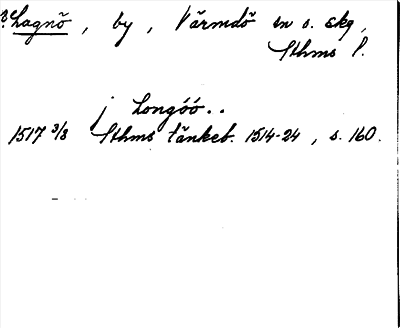 ? Lagnö, by, Värmdö sn o. skg,
Sthms l.
j Longóó..
1517 3/8 Sthms tänkeb. 1514-24, s. 160.